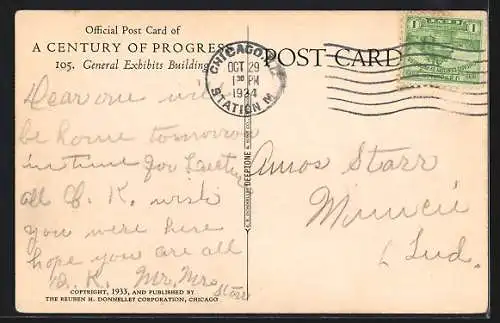 Official Post Card of
A CENTURY OF PROGRESS
105. General Exhibits Building
POST CARD
CHICAGO, ILL.
OCT 29
1 30 PM
1934
STATION M
1 CENT 1
Dear one will
be home tomorrow
in time for
all O. K. wish
you were here
hope you are all
O. K. Mr. Mrs
Starr
Amos Starr
Muncie
Ind.
C. R. DONNELLEY DEEPTONE
COPYRIGHT, 1933, AND PUBLISHED BY
THE REUBEN H. DONNELLEY CORPORATION, CHICAGO